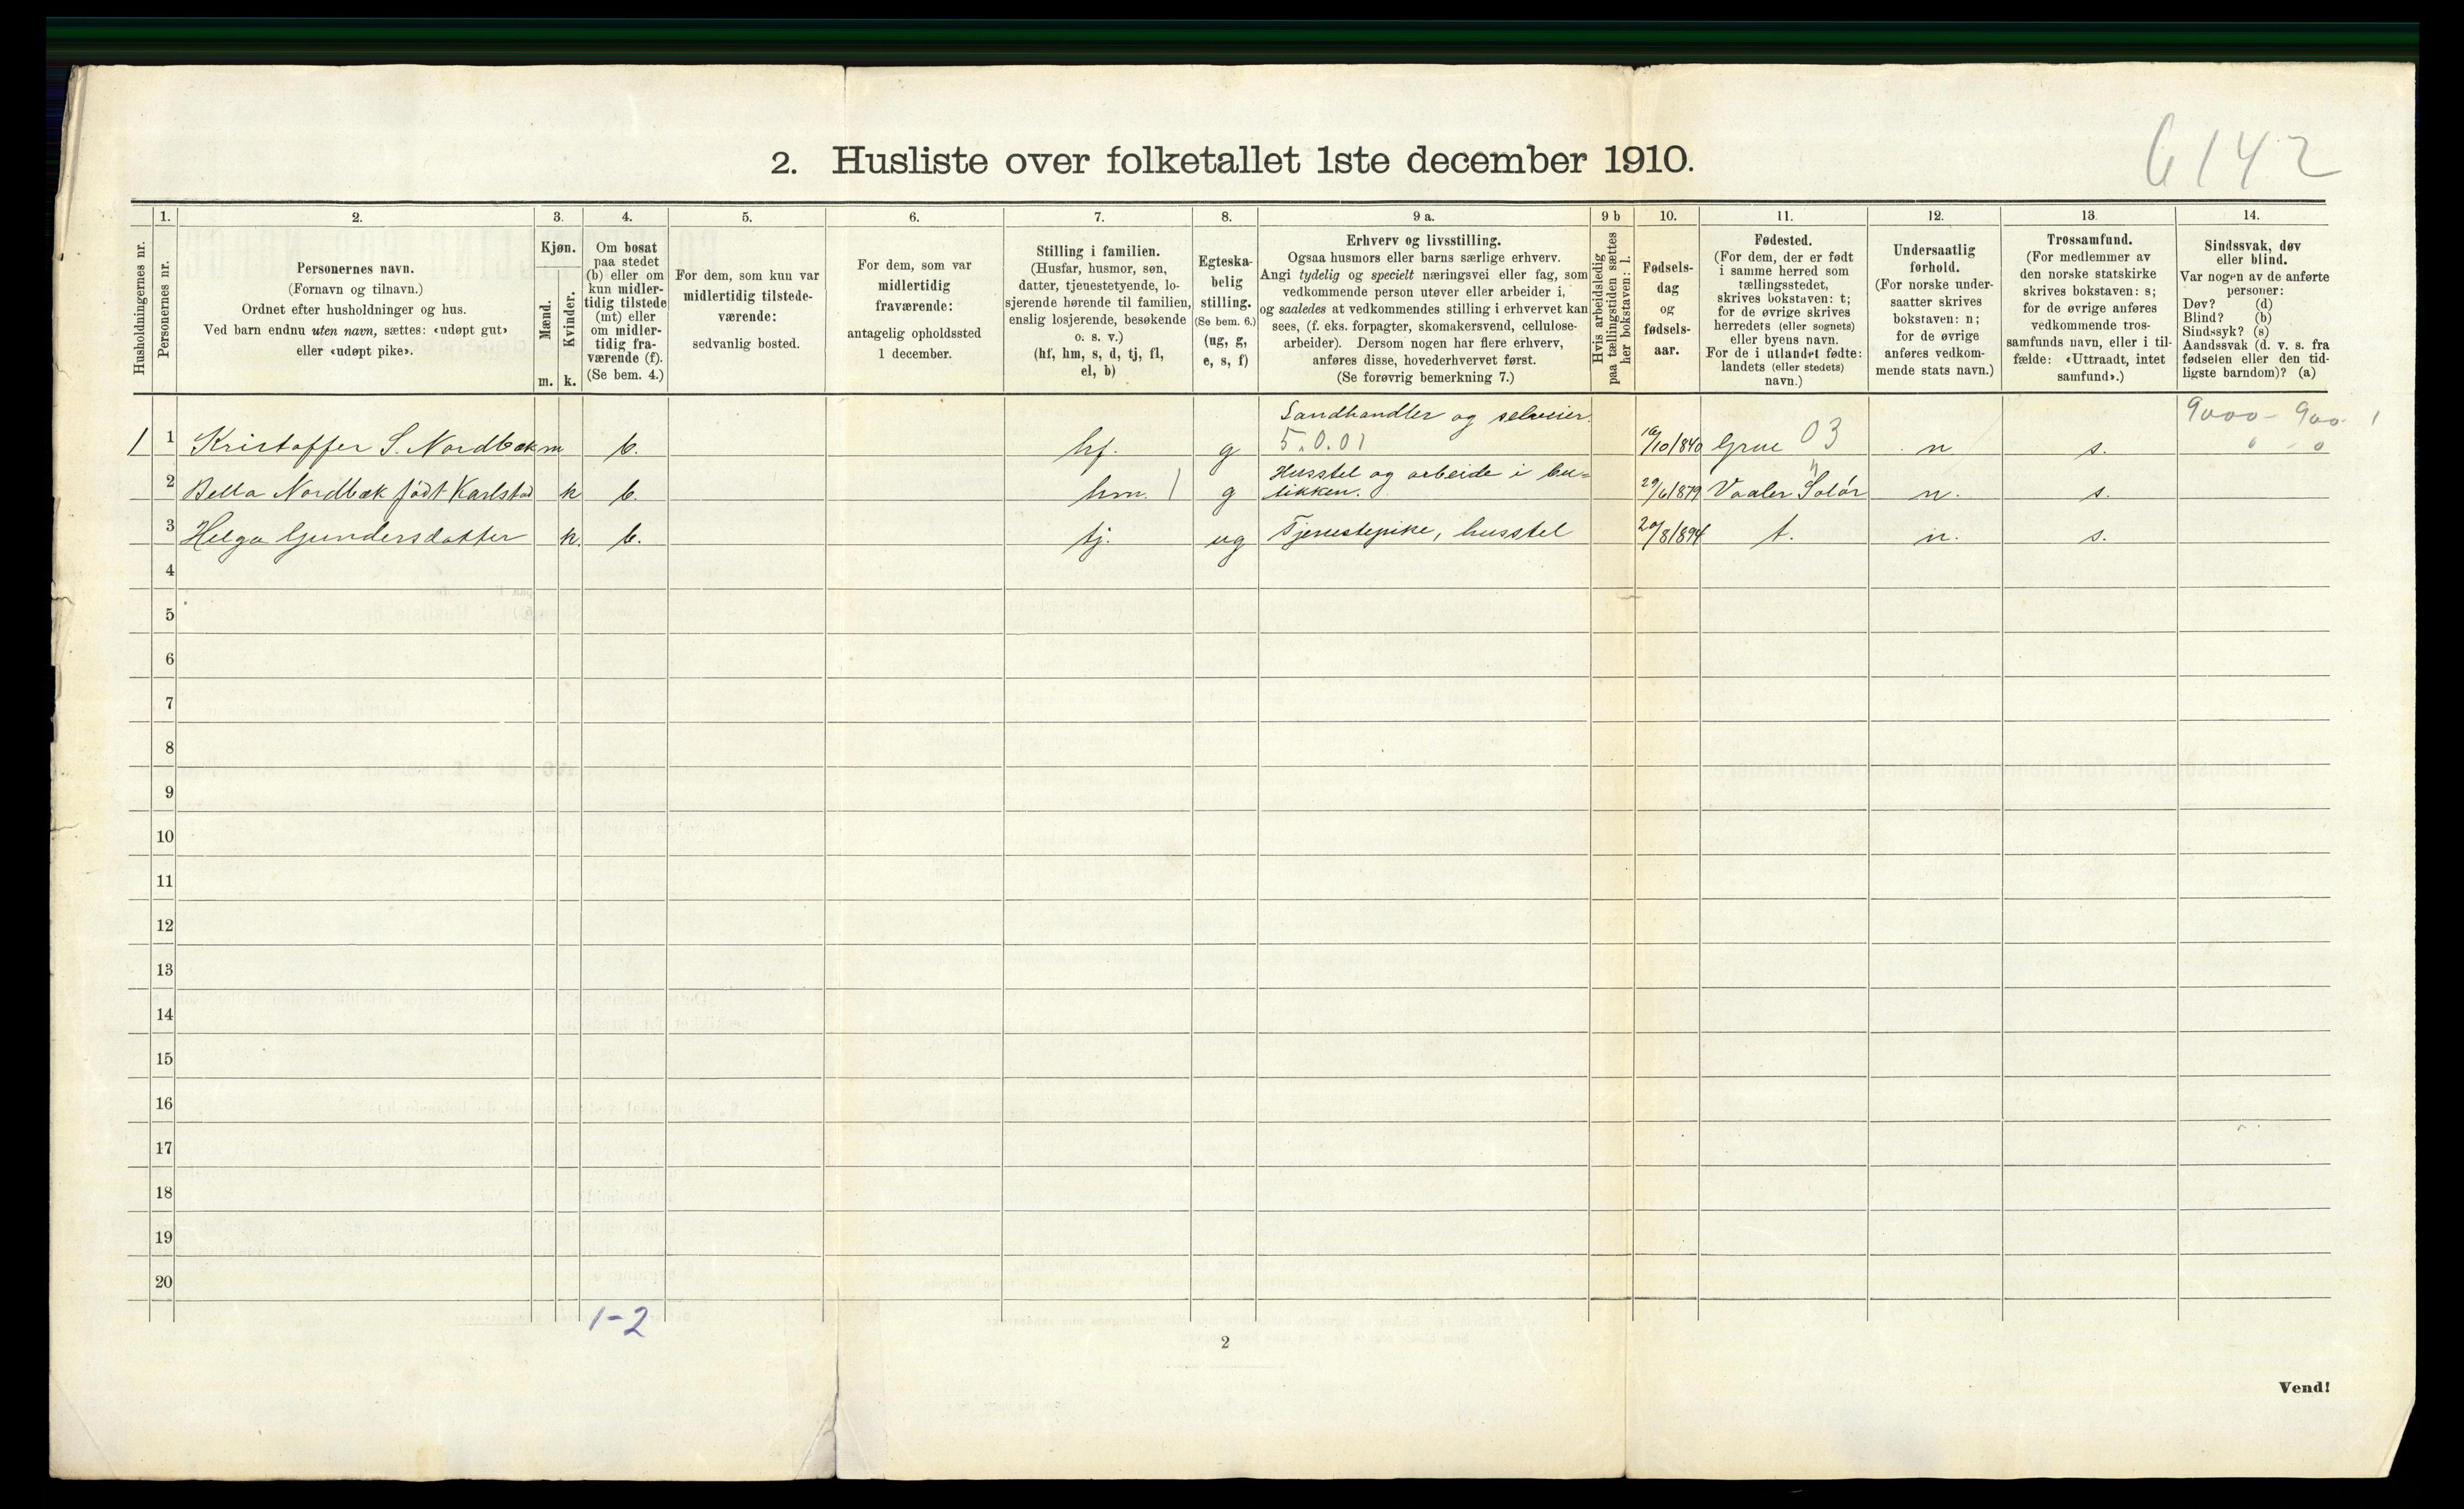 6142
2. Husliste over folketallet 1ste december 1910.
Husholdningernes nr.
1.
Personernes nr.
2.
Personernes navn.
(Fornavn og tilnavn.)
Ordnet efter husholdninger og hus.
Ved barn endnu uten navn, sættes: «udøpt gut»
eller «udøpt pike».
3.
Kjøn.
Mænd.
Kvinder.
m. k.
4.
Om bosat
paa stedet
(b) eller om
kun midler-
tidig tilstede
(mt) eller
om midler-
tidig fra-
værende (f).
(Se bem. 4.)
5.
For dem, som kun var
midlertidig tilstede-
værende:
sedvanlig bosted.
6.
For dem, som var
midlertidig
fraværende:
antagelig opholdssted
1 december.
7.
Stilling i familien.
(Husfar, husmor, søn,
datter, tjenestetyende, lo-
sjerende hørende til familien,
enslig losjerende, besøkende
o. s. v.)
(hf, hm, s, d, tj, fl,
el, b)
8.
Egteska-
belig
stilling.
(Se bem. 6.)
(ug, g,
e, s, f)
9 a.
Erhverv og livsstilling.
Ogsaa husmors eller barns særlige erhverv.
Angi tydelig og specielt næringsvei eller fag, som
vedkommende person utøver eller arbeider i,
og saaledes at vedkommendes stilling i erhvervet kan
sees, (f. eks. forpagter, skomakersvend, cellulose-
arbeider). Dersom nogen har flere erhverv,
anføres disse, hovederhvervet først.
(Se forøvrig bemerkning 7.)
9 b
Hvis arbeidsledig
paa tællingstiden sættes
her bokstaven: l.
10.
Fødsels-
dag
og
fødsels-
aar.
11.
Fødested.
(For dem, der er født
i samme herred som
tællingsstedet,
skrives bokstaven: t;
for de øvrige skrives
herredets (eller sognets)
eller byens navn.
For de i utlandet fødte:
landets (eller stedets)
navn.)
12.
Undersaatlig
forhold.
(For norske under-
saatter skrives
bokstaven: n;
for de øvrige
anføres vedkom-
mende stats navn.)
13.
Trossamfund.
(For medlemmer av
den norske statskirke
skrives bokstaven: s;
for de øvrige anføres
vedkommende tros-
samfunds navn, eller i til-
fælde: «Uttraadt, intet
samfund».)
14.
Sindssvak, døv
eller blind.
Var nogen av de anførte
personer:
Døv? (d)
Blind? (b)
Sindssyk? (s)
Aandssvak (d. v. s. fra
fødselen eller den tid-
ligste barndom)? (a)
Landhandler og selveier. 9000 - 900 1
1 1 Kristoffer S. Nordbæk m b. hf. g 5.0.01 16/10/840 Grue 03 n s. 0 - 0
Husstel og arbeide i bu-
2 Bella Nordbæk født Karlstad k b. hm. 1 g tikken. 29/6/879 Vaaler Solør " n. s.
3 Helga Gundersdatter k. b. tj. ug Tjenestepike, husstel 20/8/894 t. n. s.
4
5
6
7
8
9
10
11
12
13
14
15
16
17
18
19
20
1-2
2
Vend!